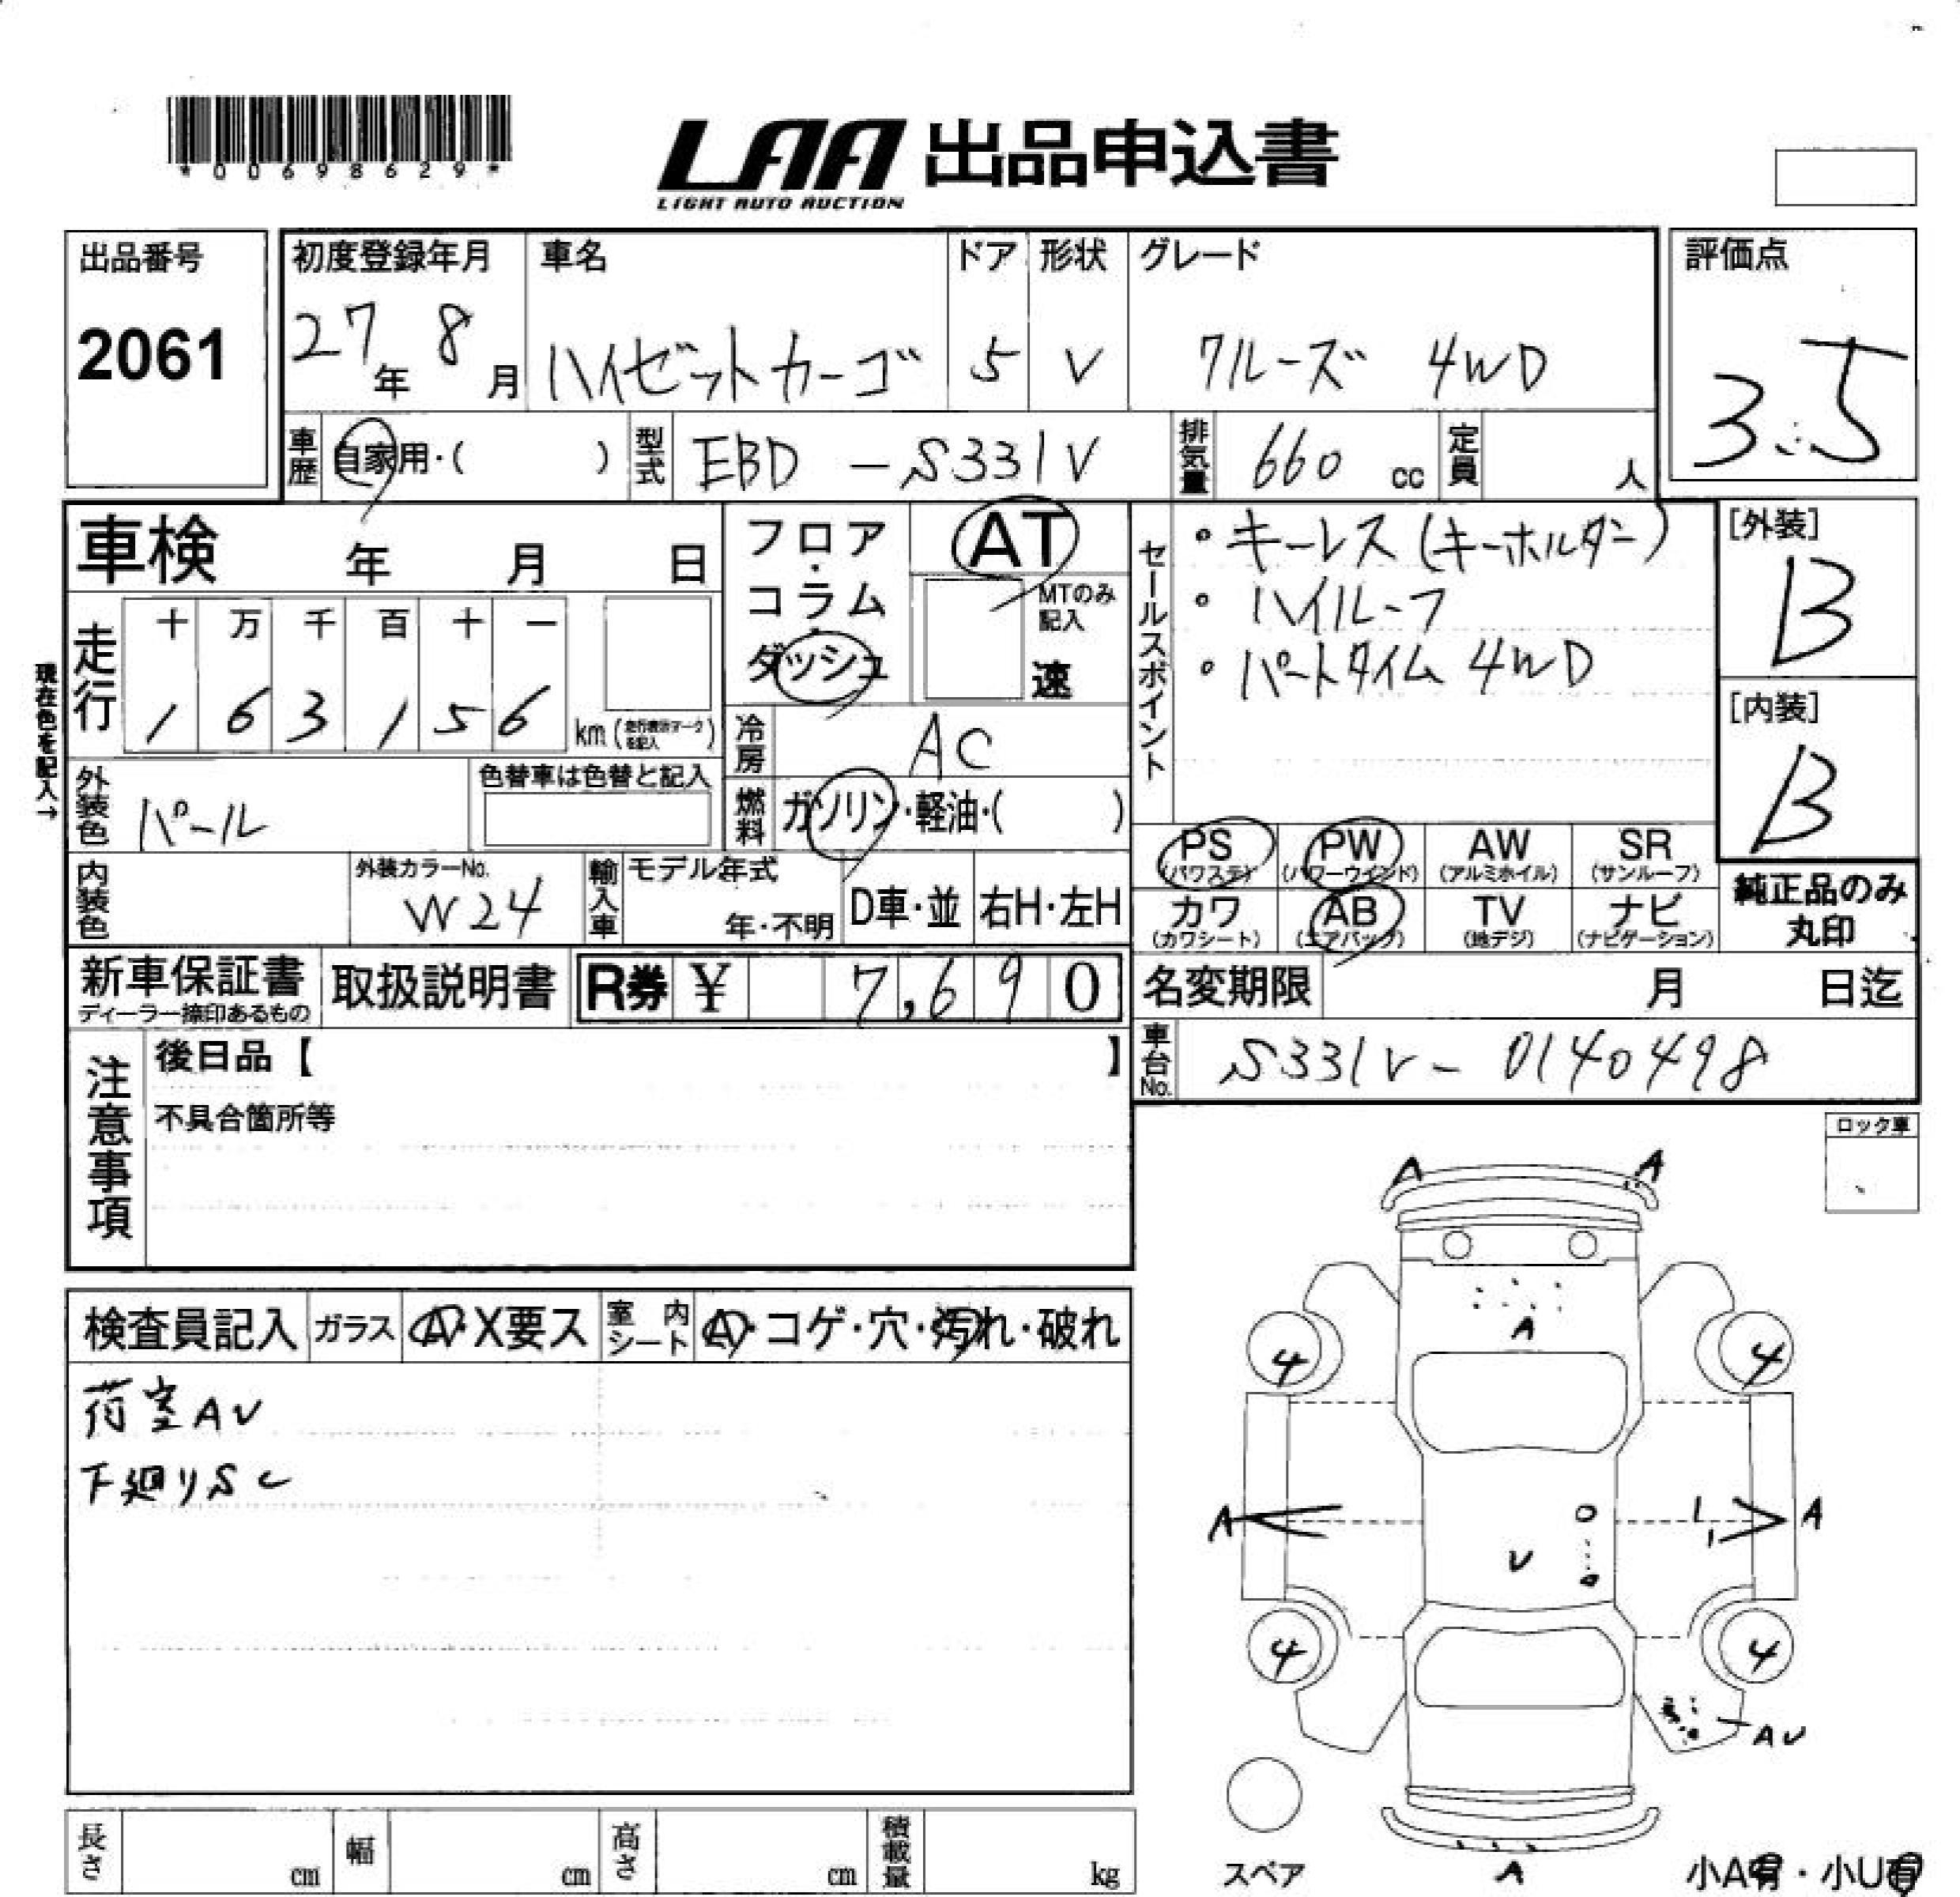 *00698629*
LAA 出品申込書
LIGHT AUTO AUCTION
出品番号
2061
初度登録年月
27年 8月
車名
ハイゼットカーゴ
ドア
5
形状
V
グレード
クルーズ 4WD
評価点
3.5
車歴 自家用・( )
型式 EBD-S331V
排気量 660 cc
定員 人
車検 年 月 日
フロア・コラム・ダッシュ
AT
MTのみ記入
速
セールスポイント
・キーレス(キーホルダー)
・ハイルーフ
・パートタイム 4WD
[外装]
B
[内装]
B
現在色を記入→
走行
十 万 千 百 十 一
1 6 3 1 5 6 km(走行表示マークを記入)
冷房 AC
外装色 パール
色替車は色替と記入
燃料 ガソリン・軽油・( )
PS (パワステ)
PW (パワーウインド)
AW (アルミホイル)
SR (サンルーフ)
内装色
外装カラーNo.
W24
輸入車
モデル年式
年・不明
D車・並
右H・左H
カワ (カワシート)
AB (エアバッグ)
TV (地デジ)
ナビ (ナビゲーション)
純正品のみ丸印
新車保証書
ディーラー捺印あるもの
取扱説明書
R券 ¥ 7,690
名変期限 月 日迄
車台No. S331V-0140498
注意事項
後日品【 】
不具合箇所等
ロック車
A A
検査員記入 ガラス A・X要ス 室内シート A・コゲ・穴・汚れ・破れ
荷室AU
下廻りSC
A
4 4
A A
U
4 4
AU
長さ cm 幅 cm 高さ cm 積載量 kg
スペア
A
小A有・小U有